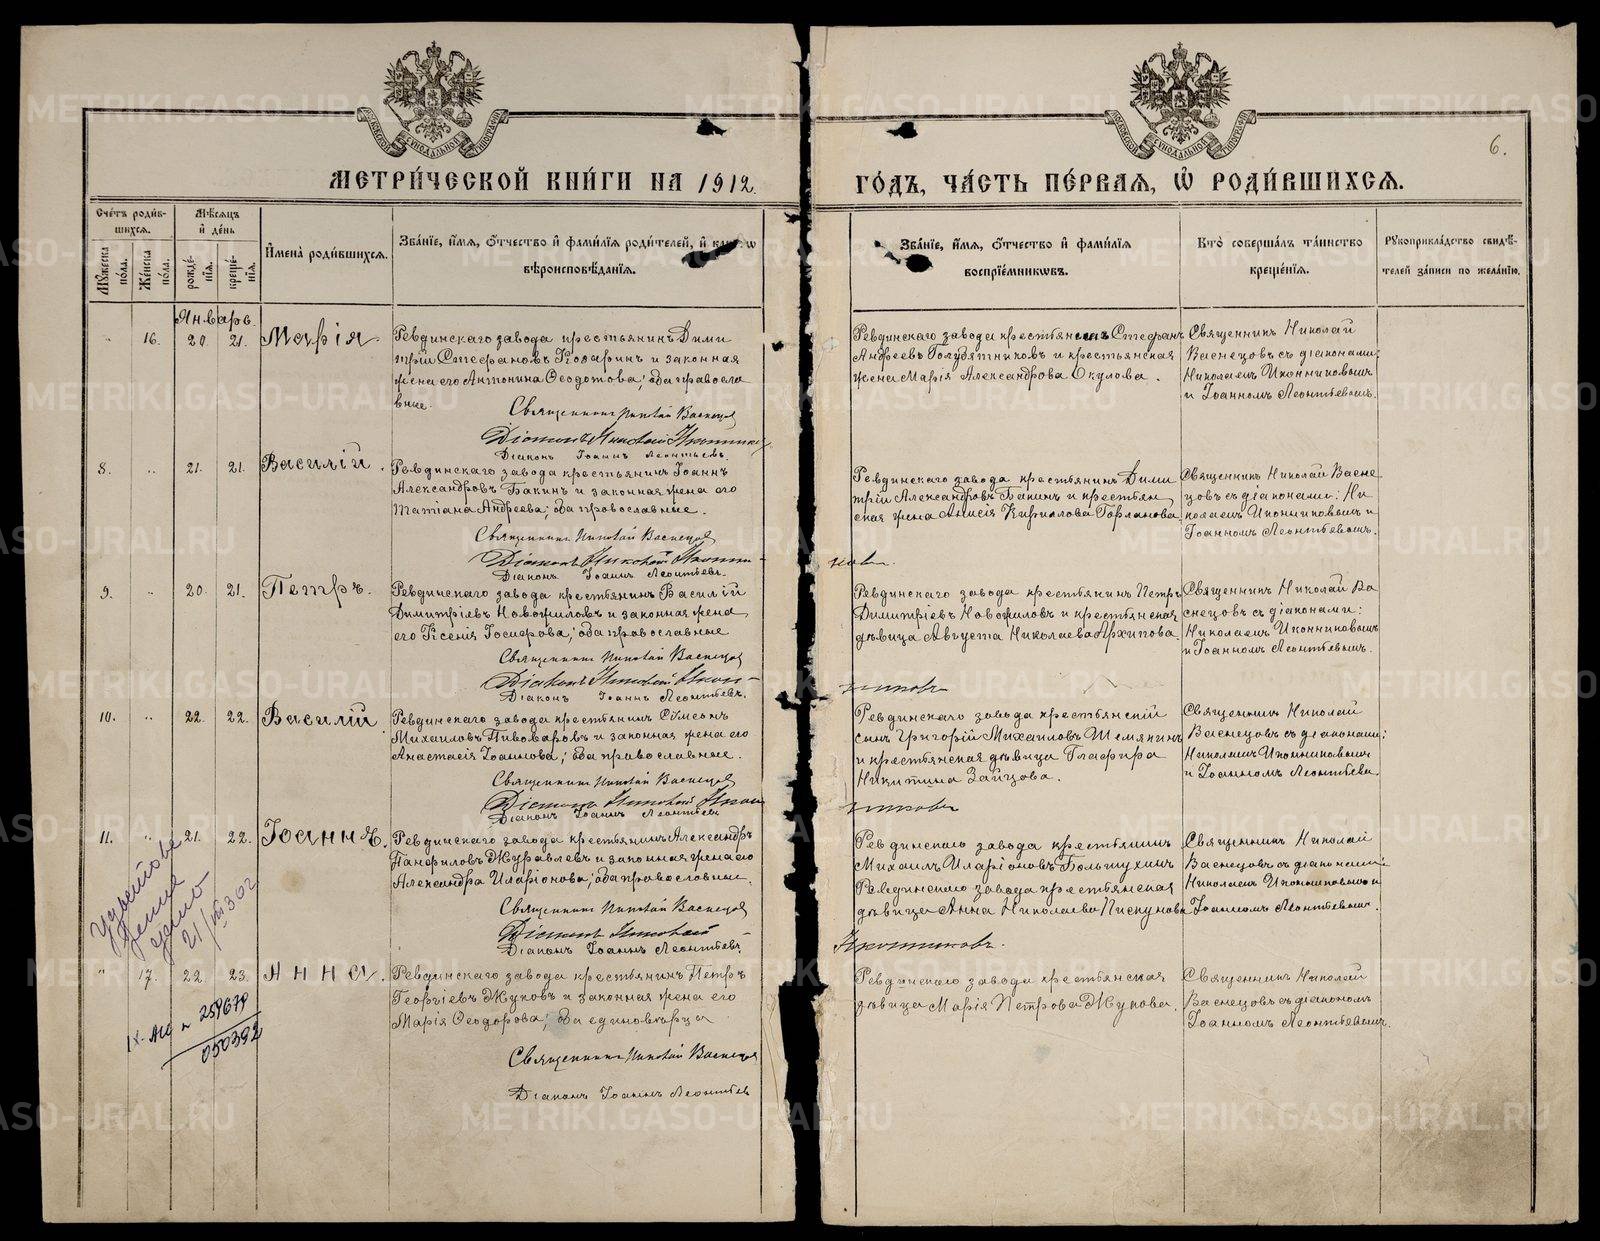 МЕТРИ́ЧЕСКОЙ КНИ́ГИ НА 1912.
ГО́ДЪ, ЧА́СТЬ ПЕ́РВАЯ, Ѡ РОДИ́ВШИХСЯ.
6.
Сче́тъ роди́в-
шихся.
Мѣ́сяцъ
и де́нь
Мꙋ́жеска по́ла.
Же́нска по́ла.
рожде́-
нїя.
креще́-
нїя.
И҆мена̀ роди́вшихся.
Зва́нїе, и҆́мя, ѻ҆́тчество и҆ фами́лїя роди́телей, и҆
вѣроисповѣ́данїя.
Зва́нїе, и҆́мя, ѻ҆́тчество и҆ фами́лїя
воспрїе́мникѡвъ.
Кто̀ соверша́лъ та́инство
креще́нїя.
Рꙋкоприкла́дство свидѣ́-
телей за́писи по жела́нїю.
Январь.
16. 20. 21. Марія.
Ревдинскаго завода крестьянинъ Дими
трій Стефановъ и законная
жена его Антонина Ѳеодотова; оба правосла
вные.
Священникъ Николай Васнецов
Діаконъ Николай
Діаконъ Іоаннъ Леонтьевъ.
Ревдинскаго завода крестьянинъ Стефанъ
Андреевъ Голубятниковъ и крестьянская
жена Марія Александрова Окулова.
Священникъ Николай
Васнецовъ съ діаконами:
Николаемъ Иконниковымъ
и Іоанномъ Леонтьевымъ.
8. 21. 21. Василій.
Ревдинскаго завода крестьянинъ Іоаннъ
Александровъ Бакинъ и законная жена его
Татіана Андреева; оба православные.
Священникъ Николай Васнецов
Діаконъ Николай
Діаконъ Іоаннъ Леонтьевъ.
Ревдинскаго завода крестьянинъ Дими
трій Александровъ Бакинъ и крестьян
ская жена Анисія Кириллова Горланова.
Священникъ Николай Васне
цовъ съ діаконами: Ни
колаемъ Иконниковымъ и
Іоанномъ Леонтьевымъ.
9. 20. 21. Петръ.
Ревдинскаго завода крестьянинъ Василій
Димитріевъ Новожиловъ и законная жена
его Ксенія Іосифова; оба православные
Священникъ Николай Васнецов
Діаконъ Николай Икон-
Діаконъ Іоаннъ Леонтьевъ.
никовъ
Ревдинскаго завода крестьянинъ Петръ
Димитріевъ Новожиловъ и крестьянская
дѣвица Августа Николаева Архипова.
Священникъ Николай Ва
снецовъ съ діаконами:
Николаемъ Иконниковымъ
и Іоанномъ Леонтьевымъ.
10. 22. 22. Василій.
Ревдинскаго завода крестьянинъ Сѵмеонъ
Михаиловъ Пивоваровъ и законная жена его
Анастасія Іоаннова; оба православные.
Священникъ Николай Васнецов
Діаконъ Николай Икон
Діаконъ Іоаннъ Леонтьевъ
никовъ
Ревдинскаго завода крестьянскій
сынъ Григорій Михаиловъ Шемякинъ
и крестьянская дѣвица Глафира
Никитина Зайцова.
Священникъ Николай
Васнецовъ съ діаконами:
Николаемъ Иконниковымъ
и Іоанномъ Леонтьевы.
11. 21. 22. Іоаннъ.
Ревдинскаго завода крестьянинъ Александръ
Панфиловъ Журавлевъ и законная жена его
Александра Иларіонова; оба православные.
Священникъ Николай Васнецов
Діаконъ Николай
Діаконъ Іоаннъ Леонтьевъ
Иконниковъ.
Ревдинскаго завода крестьянинъ
Михаилъ Иларіоновъ Болтухинъ
Ревдинскаго завода крестьянская
дѣвица Анна Николаева Пискунова
Священникъ Николай
Васнецовъ съ діаконами
Николаемъ Иконниковымъ и
Іоанномъ Леонтьевымъ.
17. 22. 23. Анна.
Ревдинскаго завода крестьянинъ Петръ
Георгіевъ Жуковъ и законная жена его
Марія Ѳеодорова; оба единовѣрцы
Священникъ Николай Васнецов
Діаконъ Іоаннъ Леонтьев
Ревдинскаго завода крестьянская
дѣвица Марія Петрова Жукова.
Священникъ Николай
Васнецовъ съ діакономъ
Іоанномъ Леонтьевымъ.
259679
050392
METRIKI.GASO-URAL.RU